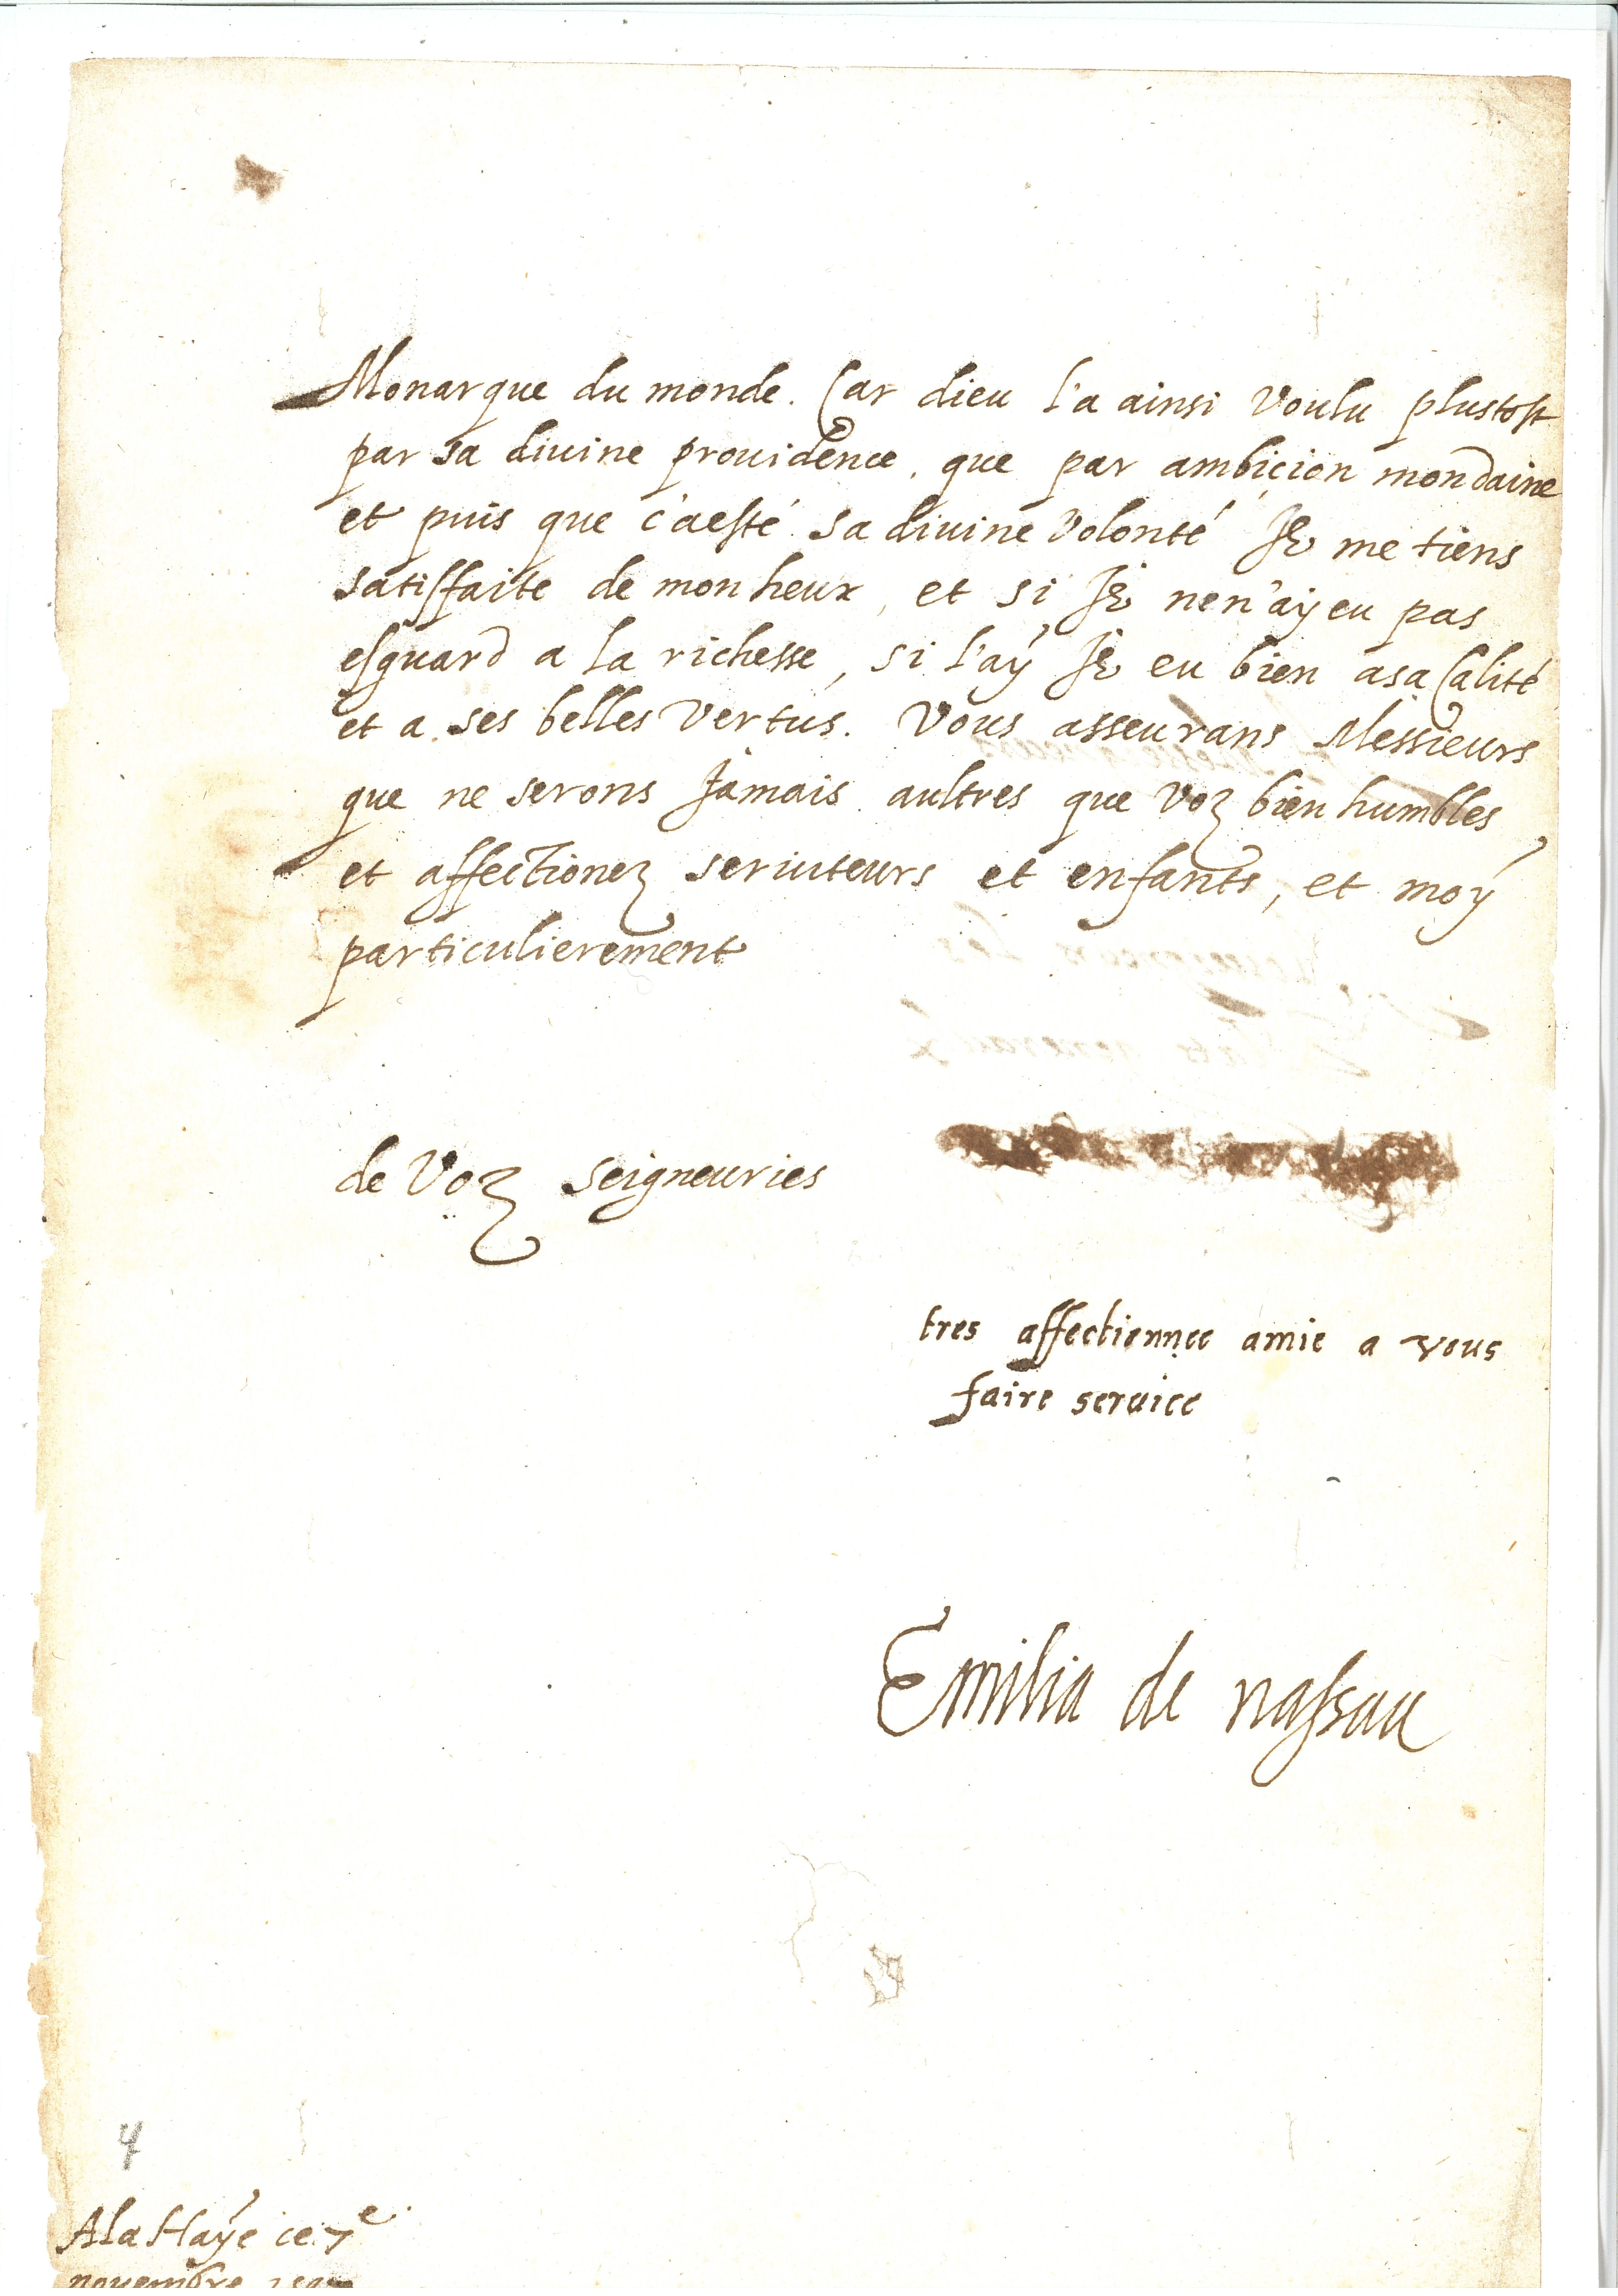 Monarque du monde. Car dieu l'a ainsi Voulu plustost
par sa diuine prouidence, que par ambicion mondaine
et puis que c'aesté sa diuine Volonté Je me tiens
satisfaite de mon heur, et si Je nen'aÿ eu pas
esguard a la richesse, si l'aÿ Je eu bien asa Calité
et a ses belles Vertus. Vous asseurans Messieurs
que ne serons Jamais aultres que Voz bien humbles
et affectionez seruiteurs et enfants, et moÿ
particulierement
de Voz seigneuries
tres affectionnee amie a vous
faire seruice
Emilia de nassau
4
A la Haÿe ce 7e
novembre